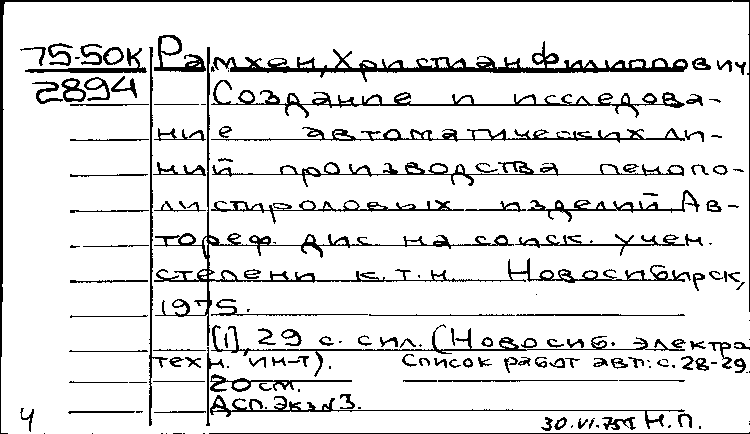 75-50К Рамхен, Христиан Филиппович.
2894 Создание и исследова-
ние автоматических ли-
ний производства пенопо-
листироловых изделий. Ав-
тореф. дис. на соиск. учен.
степени к.т.н. Новосибирск,
1975.
[1], 29 с. с ил. (Новосиб. электро
техн. ин-т). Список работ авт.: с. 28-29
20 см.
Дсп. Экз. №3.
Ч 30.VI.75г Н.П.